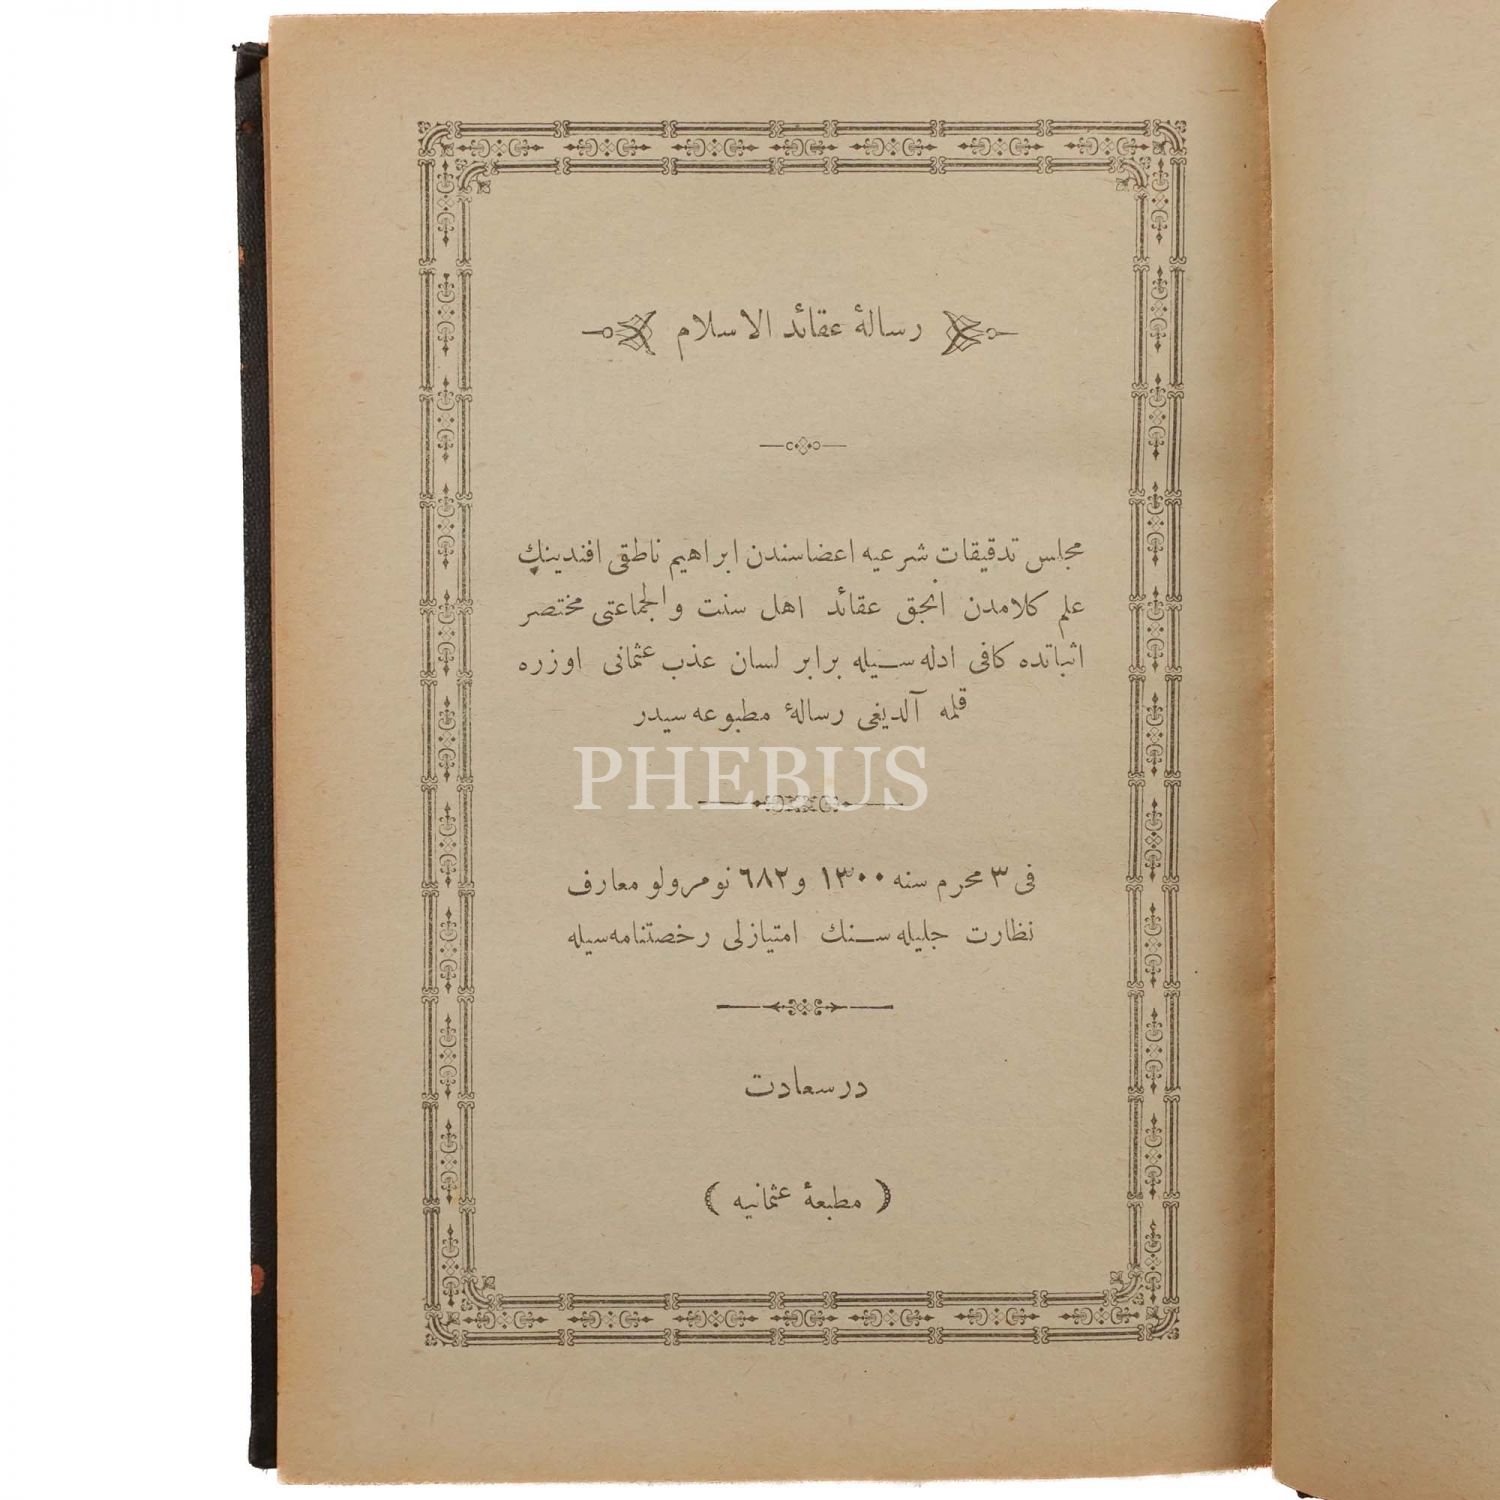 رسالۀ عقائد الاسلام
مجلس تدقيقات شرعيه اعضاسندن ابراهيم ناطقى افندينك
علم كلامدن انجق عقائد اهل سنت والجماعتى مختصر
اثباتده كافى ادله سيله برابر لسان عذب عثمانى اوزره
قلمه آلديغى رسالۀ مطبوعه سيدر
PHEBUS
فى ٣ محرم سنه ١٣٠٠ و ٦٨٢ نومرولو معارف
نظارت جليله سنك امتيازلى رخصتنامه سيله
درسعادت
( مطبعۀ عثمانيه )